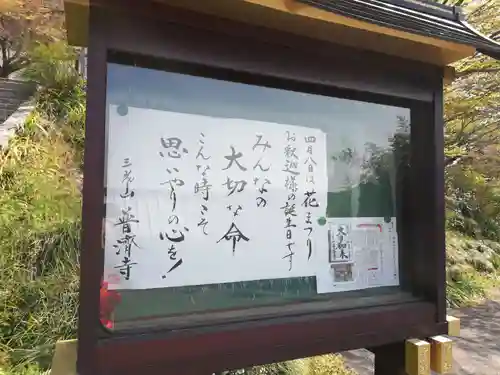 四月八日は花まつり
お釈迦様の誕生日です
みんなの
大切な命
こんな時こそ
思いやりの心を!
三光山
普濟寺